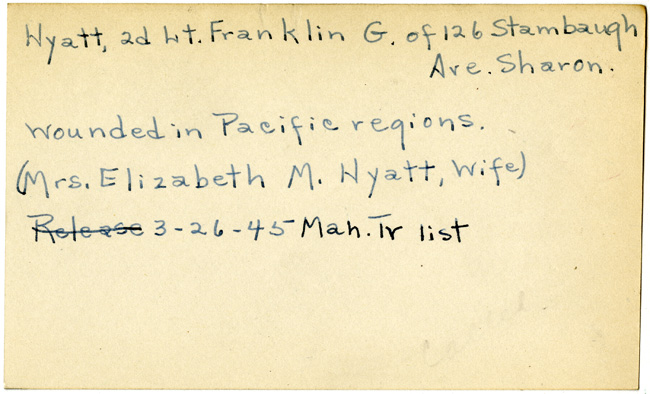 Hyatt, 2d Lt. Franklin G. of 126 Stambaugh
Ave. Sharon.
Wounded in Pacific regions.
(Mrs. Elizabeth M. Hyatt, Wife)
Release 3-26-45 Mah. Tr list